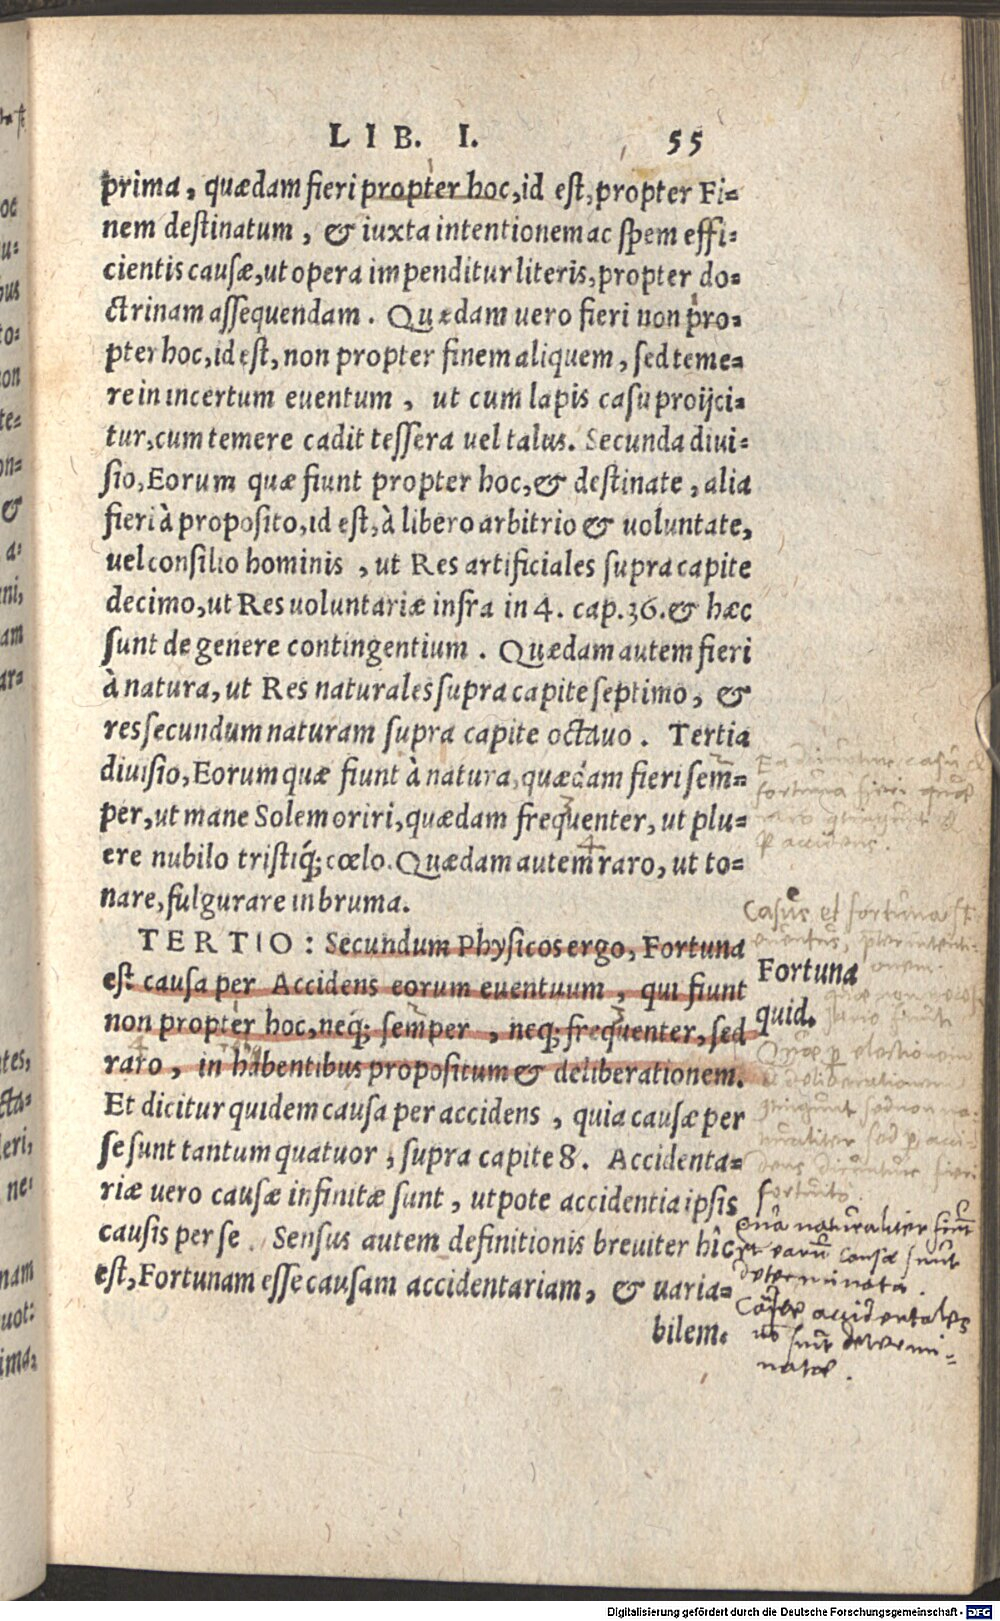 LIB. I. 55
prima, quædam fieri propter hoc, id est, propter Fi=
nem destinatum, & iuxta intentionem ac spem effi=
cientis causæ, ut opera impenditur literis, propter do=
ctrinam assequendam. Quædam uero fieri non pro=
pter hoc, id est, non propter finem aliquem, sed teme=
re in incertum euentum, ut cum lapis casu proijci=
tur, cum temere cadit tessera uel talus. Secunda diui=
sio, Eorum quæ fiunt propter hoc, & destinate, alia
fieri à proposito, id est, à libero arbitrio & uoluntate,
uel consilio hominis, ut Res artificiales supra capite
decimo, ut Res uoluntariæ infra in 4. cap. 36. & hæc
sunt de genere contingentium. Quædam autem fieri
à natura, ut Res naturales supra capite septimo, &
res secundum naturam supra capite octauo. Tertia
diuisio, Eorum quæ fiunt à natura, quædam fieri sem=
per, ut mane Solem oriri, quædam frequenter, ut plu=
ere nubilo tristiq; cœlo. Quædam autem raro, ut to=
nare, fulgurare in bruma.
TERTIO: Secundum Physicos ergo, Fortuna
est causa per Accidens eorum euentuum, qui fiunt
non propter hoc, neq; semper, neq; frequenter, sed
raro, in habentibus propositum & deliberationem.
Et dicitur quidem causa per accidens, quia causæ per
se sunt tantum quatuor, supra capite 8. Accidenta=
riæ uero causæ infinitæ sunt, utpote accidentia ipsis
causis per se. Sensus autem definitionis breuiter hîc
est, Fortunam esse causam accidentariam, & uaria=
bilem.
casu &
fortuna fieri quæ
accidens.
Casus et fortuna st
Fortuna
quid.
fortuito.
naturaliter fiunt
et earū causæ sunt
determinata.
accidentales
nō sunt determi=
natæ.
Digitalisierung gefördert durch die Deutsche Forschungsgemeinschaft - DFG